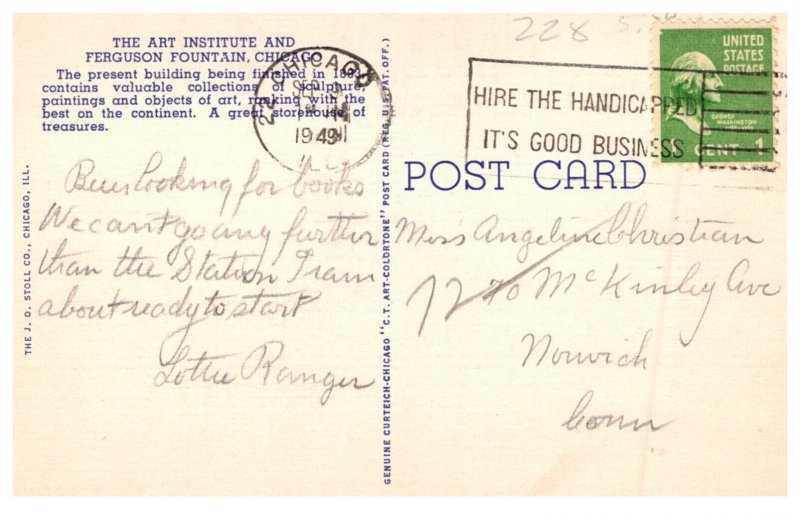 THE ART INSTITUTE AND
FERGUSON FOUNTAIN, CHICAGO
The present building being finished in 1893,
contains valuable collections of sculpture,
paintings and objects of art, ranking with the
best on the continent. A great storehouse of
treasures.
THE J. O. STOLL CO., CHICAGO, ILL.
looking for books
We cant go any further
than the Station Train
about ready to start
Lottie Ranger
GENUINE CURTEICH-CHICAGO "C.T. ART-COLORTONE" POST CARD (REG. U.S. PAT. OFF.)
CHICAGO
SEP
1949
228
HIRE THE HANDICAPPED
IT'S GOOD BUSINESS
UNITED
STATES
POSTAGE
GEORGE
WASHINGTON
CENT 1
POST CARD
Miss Angeline Christian
McKinley Ave
Norwich
Conn